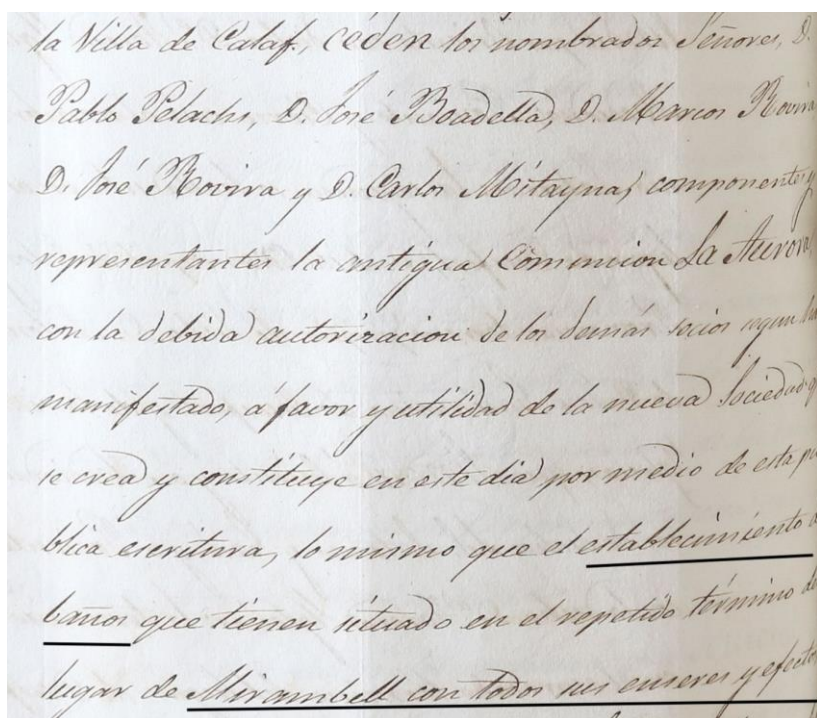 la Villa de Calaf, ceden los nombrados Señores, D.
Pablo Pelachs, D. José Boadella, D. Marcos Rovira
D. José Rovira y D. Carlos Mitayna, componentes y
representantes la antigua Comunion La Aurora,
con la debida autorizacion de los demás socios segun han
manifestado, á favor y utilidad de la nueva Sociedad q
se crea y constituye en este dia por medio de esta pu
blica escritura, lo mismo que el establecimiento d
baños que tienen situado en el repetido término del
lugar de Mirambell con todos sus enseres y efectos